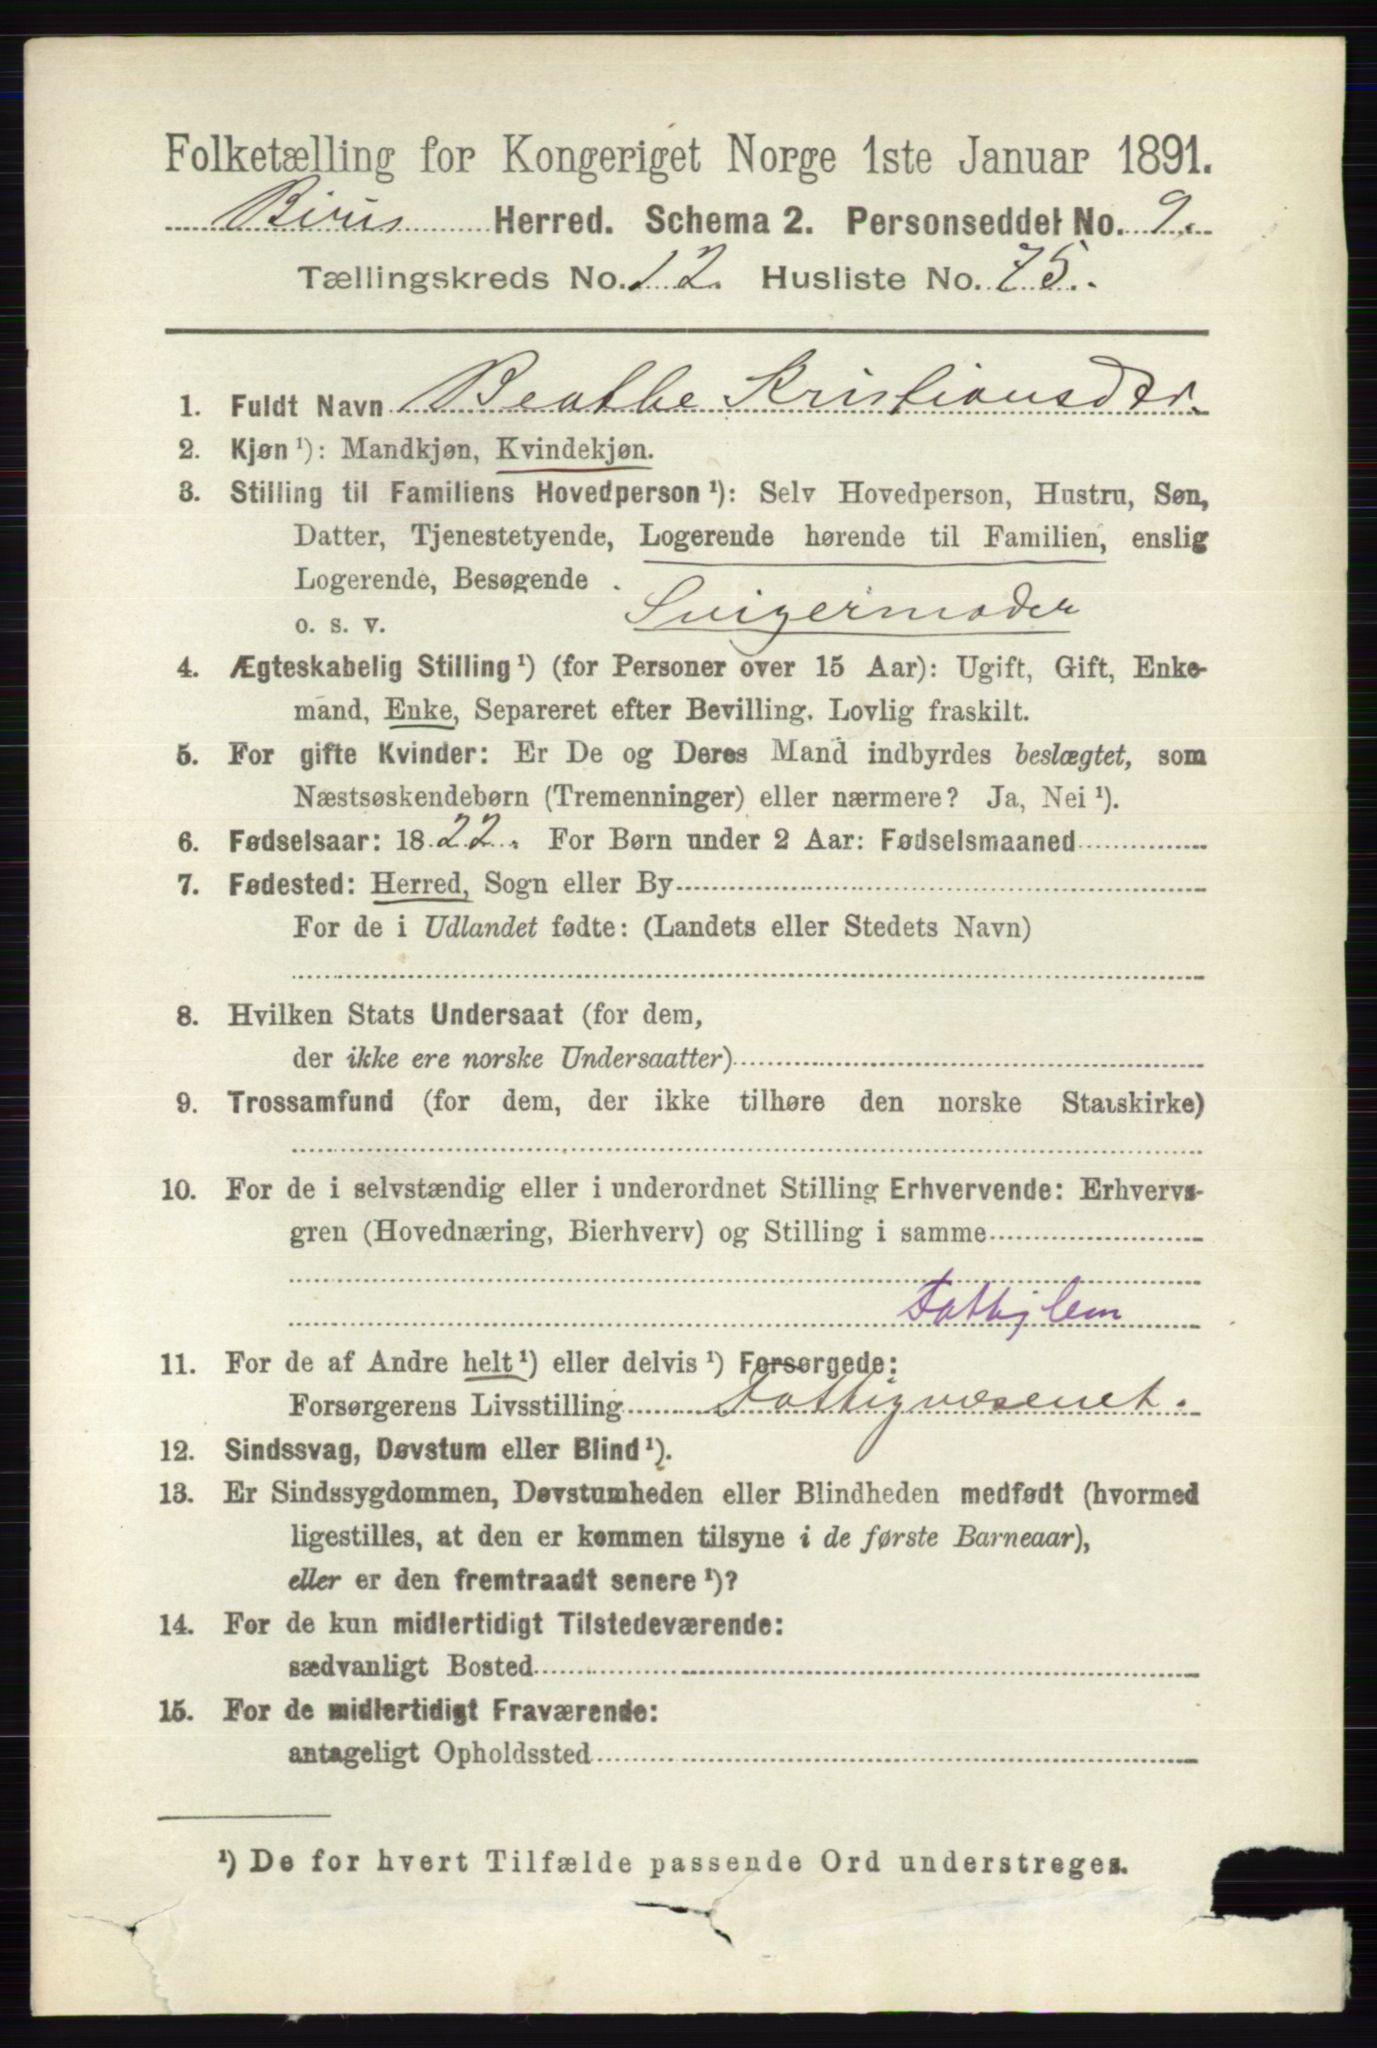 Folketælling for Kongeriget Norge 1ste Januar 1891.
Biris Herred. Schema 2. Personseddel No. 9.
Tællingskreds No. 12. Husliste No. 75.
1. Fuldt Navn Beathe Kristiansdtr.
2. Kjøn¹): Mandkjøn, Kvindekjøn.
3. Stilling til Familiens Hovedperson¹): Selv Hovedperson, Hustru, Søn,
Datter, Tjenestetyende, Logerende hørende til Familien, enslig
Logerende, Besøgende .
o. s. v. Svigermoder
4. Ægteskabelig Stilling¹) (for Personer over 15 Aar): Ugift, Gift, Enke-
mand, Enke, Separeret efter Bevilling. Lovlig fraskilt.
5. For gifte Kvinder: Er De og Deres Mand indbyrdes beslægtet, som
Næstsøskendebørn (Tremenninger) eller nærmere? Ja, Nei¹).
6. Fødselsaar: 1822. For Børn under 2 Aar: Fødselsmaaned
7. Fødested: Herred, Sogn eller By
For de i Udlandet fødte: (Landets eller Stedets Navn)
8. Hvilken Stats Undersaat (for dem,
der ikke ere norske Undersaatter)
9. Trossamfund (for dem, der ikke tilhøre den norske Statskirke)
10. For de i selvstændig eller i underordnet Stilling Erhvervende: Erhvervs-
gren (Hovednæring, Bierhverv) og Stilling i samme
Fattiglem
11. For de af Andre helt¹) eller delvis¹) Forsørgede:
Forsørgerens Livsstilling Fattigvæsenet.
12. Sindssvag, Døvstum eller Blind¹).
13. Er Sindssygdommen, Døvstumheden eller Blindheden medfødt (hvormed
ligestilles, at den er kommen tilsyne i de første Barneaar),
eller er den fremtraadt senere¹)?
14. For de kun midlertidigt Tilstedeværende:
sædvanligt Bosted
15. For de midlertidigt Fraværende:
antageligt Opholdssted
¹) De for hvert Tilfælde passende Ord understreges.